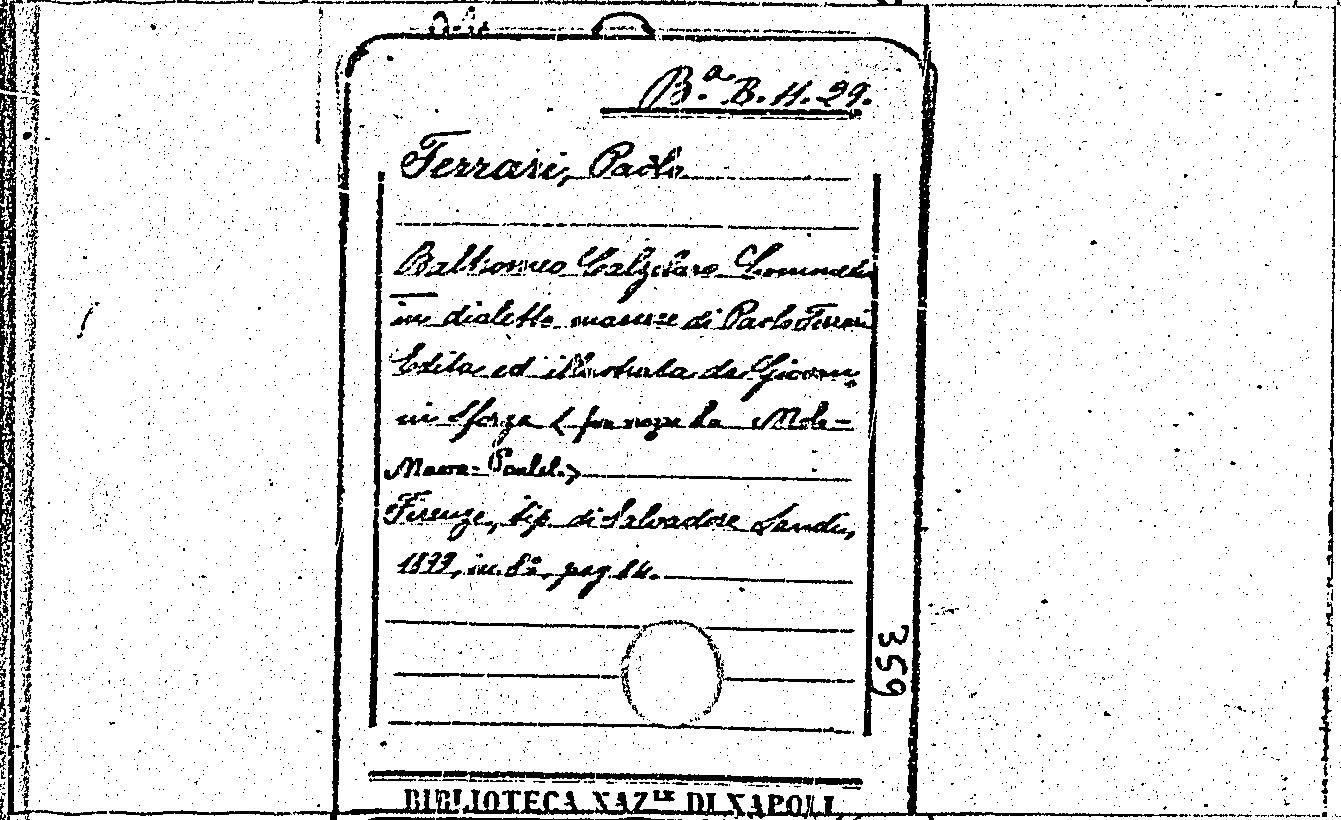 B.a B. H. 29.
Ferrari, Paolo
Baltromeo Calzolaro Commedia
in dialetto massese di Paolo Ferrari
Edita ed illustrata da Giovan-
ni Sforza (per nozze
Firenze, tip. di Salvadore Landi,
1879, in 8º, pag. 84.
359
BIBLIOTECA NAZ.LE DI NAPOLI